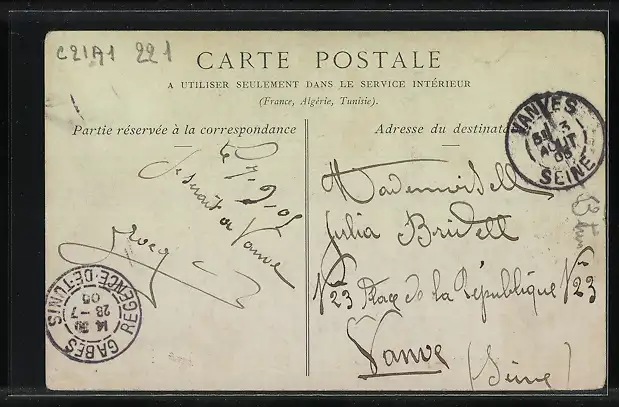 C21A1 221
CARTE POSTALE
A UTILISER SEULEMENT DANS LE SERVICE INTÉRIEUR
(France, Algérie, Tunisie).
Partie réservée à la correspondance
Adresse du destinata
VANVES
3
AOUT
05
SEINE
Vanve
Mademoiselle
Julia
N° 23 Place de la République N° 23
Vanve
(Seine)
GABES REGENCE-DE-TUNIS
14 30
28 - 7
05